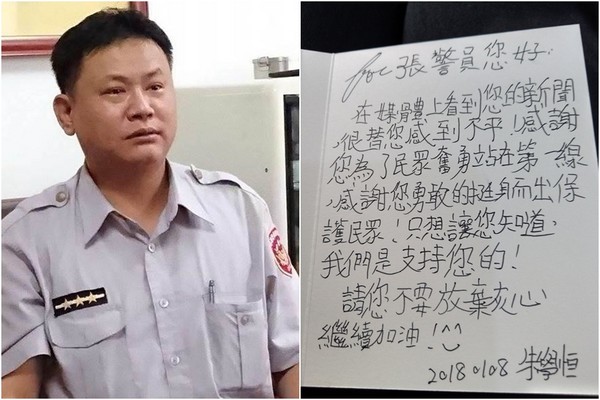 for 張警員您好:
在媒體上看到您的新聞
,很替您感到不平!感謝
您為了民眾奮勇站在第一線
,感謝您勇敢的挺身而出保
護民眾!只想讓您知道,
我們是支持您的!
請您不要放棄核心
繼續加油!^^
20180108 朱學恒